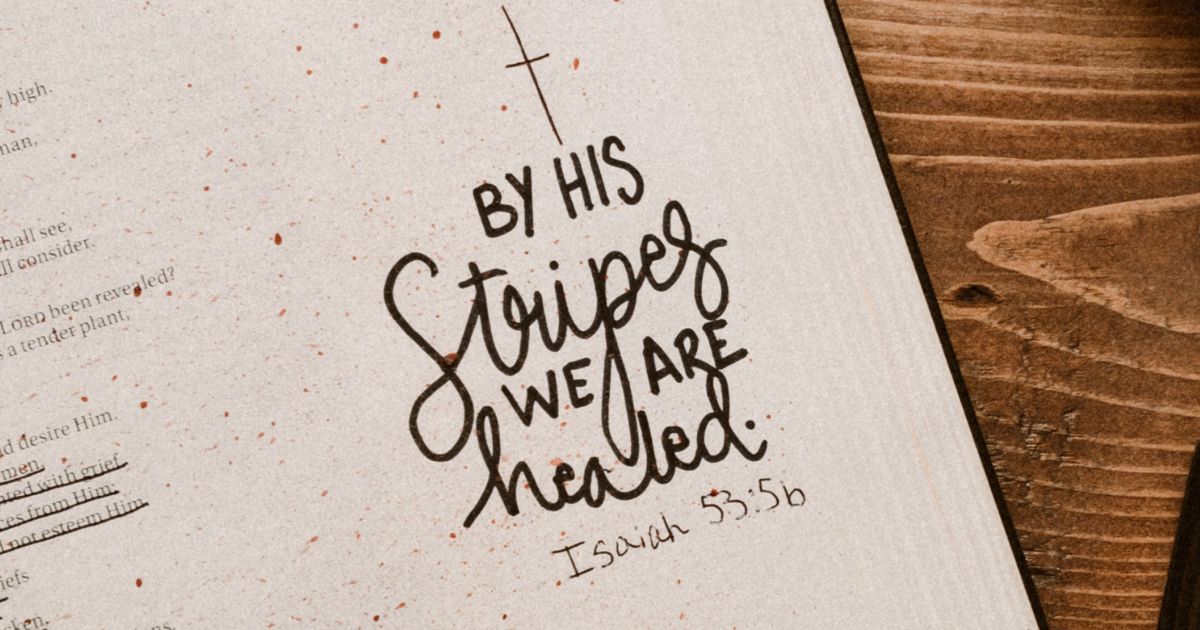 high.
man,
shall see,
consider.
LORD been revealed?
a tender plant,
desire Him.
men,
with grief,
from Him;
not esteem Him.
BY HIS
Stripes
WE ARE
healed.
Isaiah 53:5b